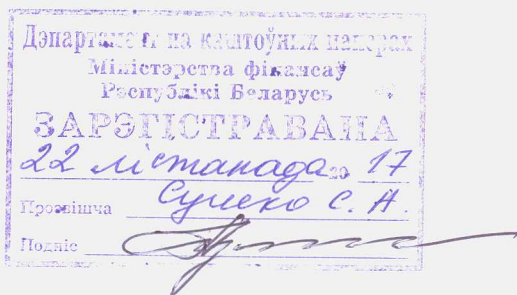 Дэпартамент па каштоўных паперах
Міністэрства фінансаў
Рэспублікі Беларусь
ЗАРЭГІСТРАВАНА
22 лістапада 20 17
Прозвішча С. А.
Подпіс